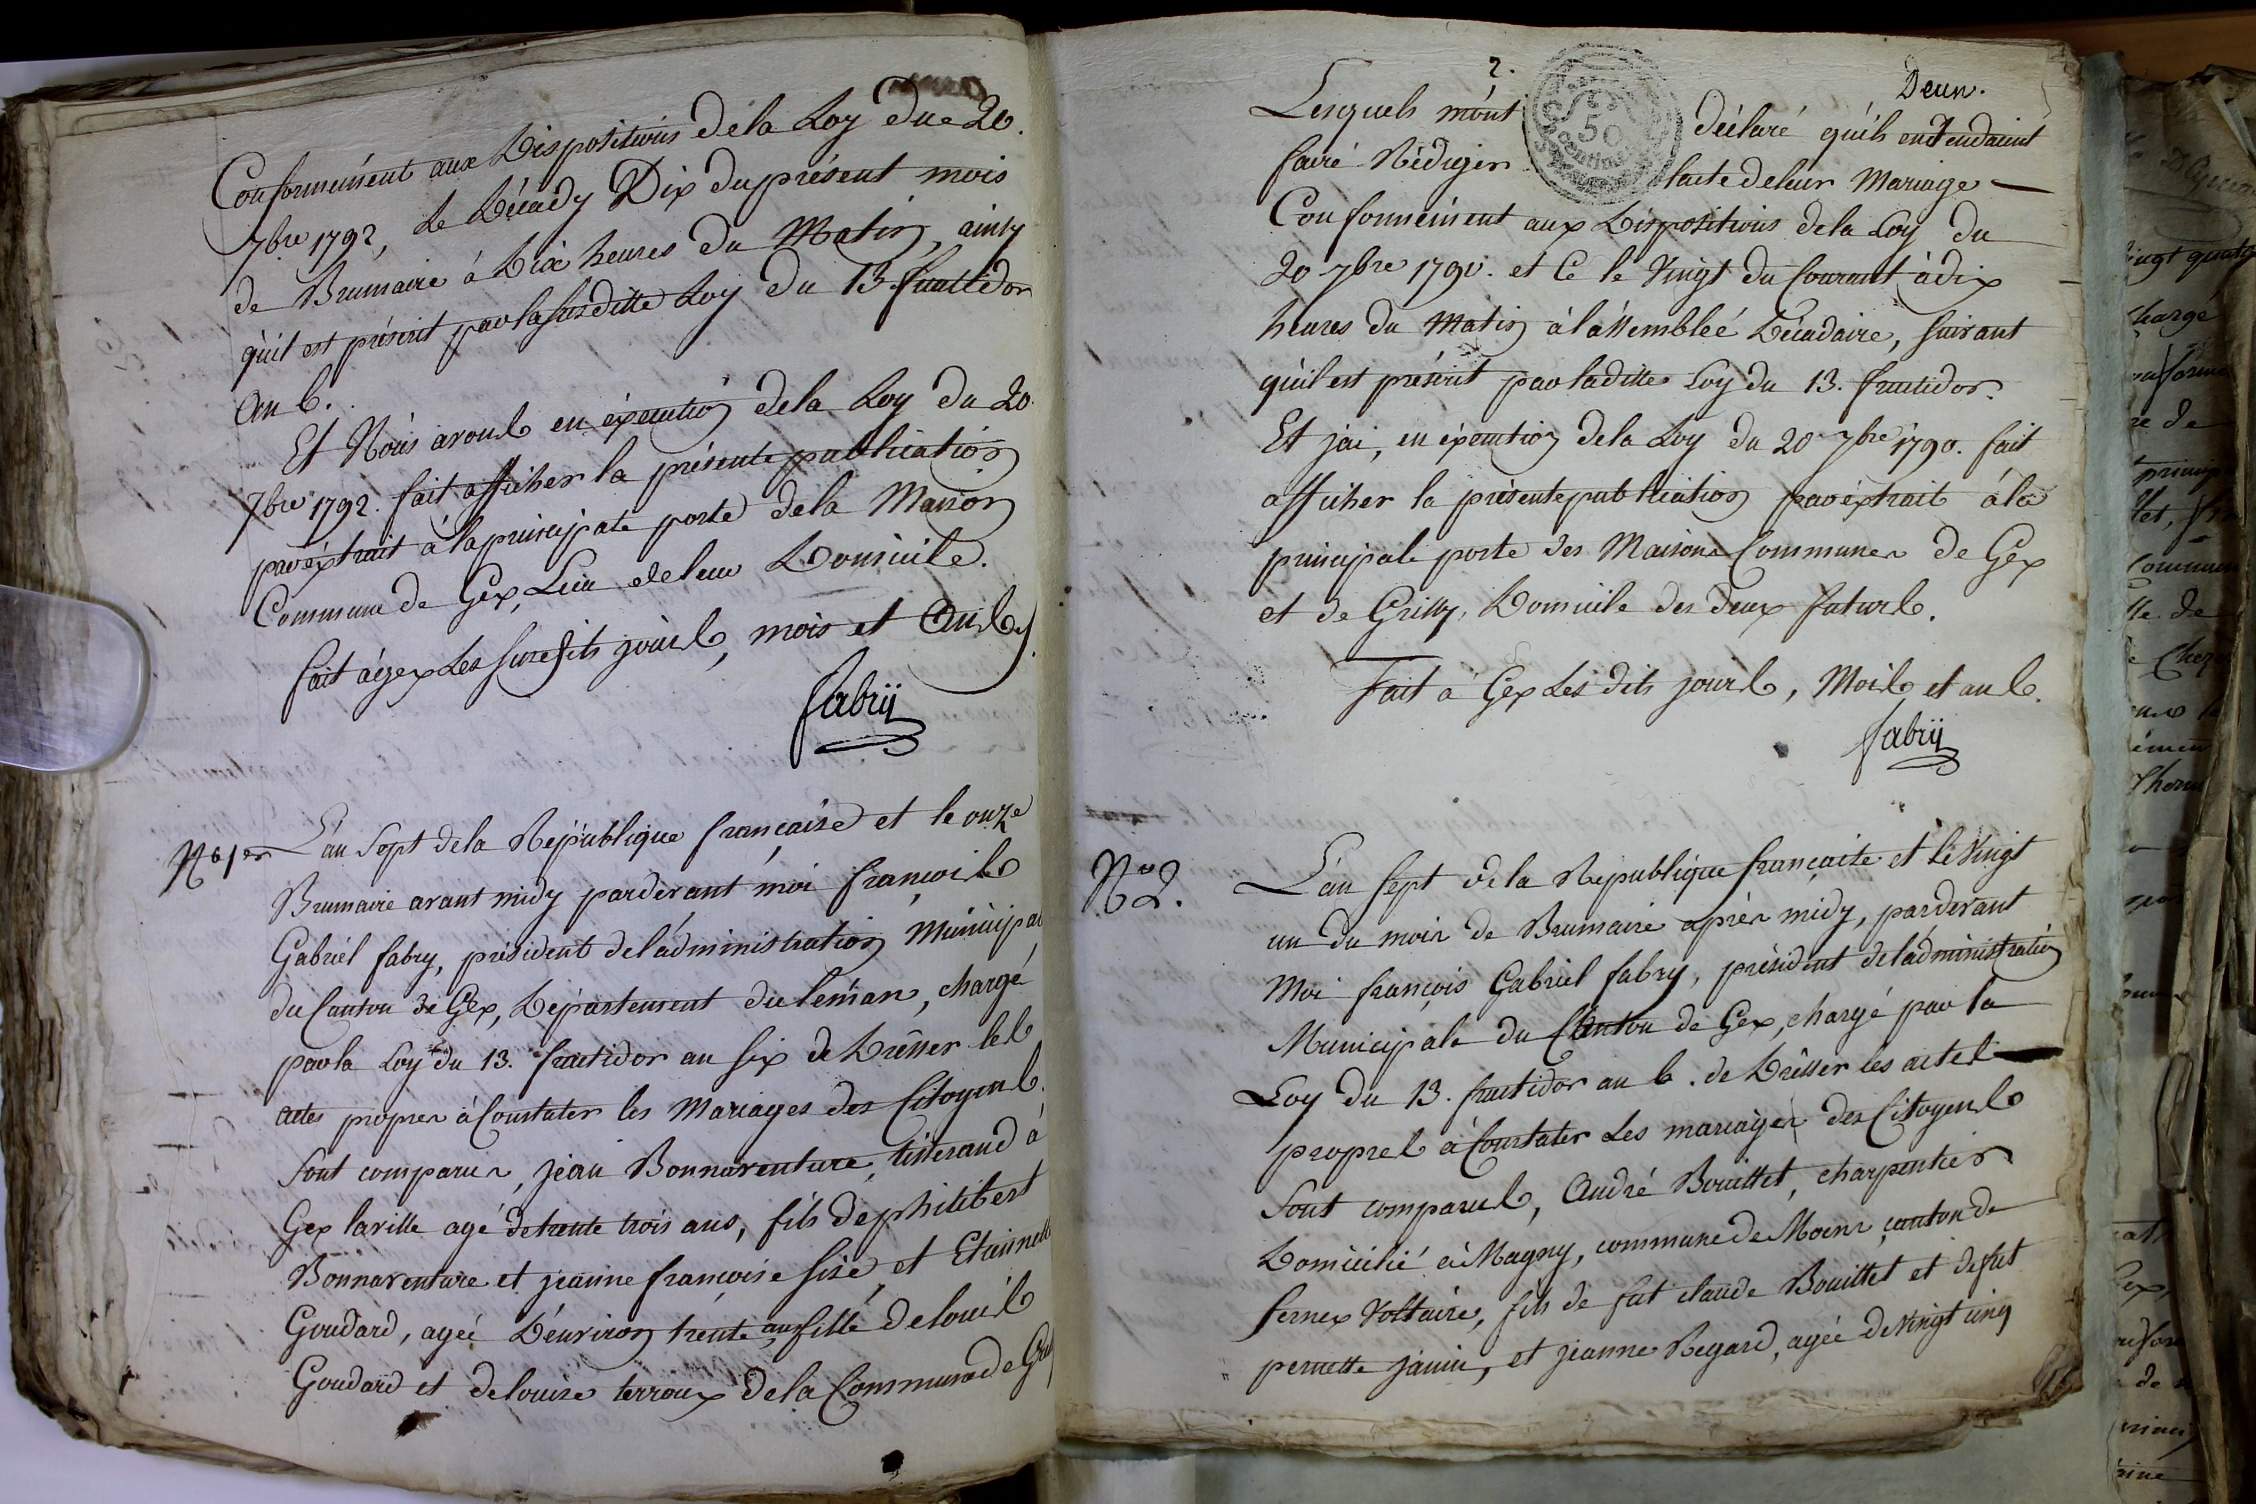 Conformément aux Dispositions de la Loy due 20.
7bre 1792, le Décady Dix du présent mois
de Brumaire à Dix heures du Matin, ainsy
qu'il est préscrit par la susditte Loy du 13 fructidor
an 6.
Et Nous avons en éxécution de la Loy du 20.
7bre 1792. fait afficher la présente publication
par éxtrait à la principale porte de la Maison
Commune de Gex, Lieu de leur Domicile.
fait à gex Les susdits jours, mois et an.
fabry
No. 1er
L'an Sept de la République françaisse et le onze
Brumaire avant midy pardevant moi françois
Gabriel fabry, président de l'administration Municipal
du Canton de Gex, Département du léman, chargé
par la Loy du 13. fructidor an six de Drésser les
actes propres à Constater les Mariages des Citoyens.
Sont comparus, jean Bonnaventure, tisserand à
Gex la ville agé de trente trois ans, fils de philibert
Bonnaventure et jeanne françoise size, et Etiennette
Goudard, agée D'environ trente ans fille de louis
Goudard et de louise terroux de la Commune de Gex
2.
Deux.
50
Lesquels m'ont déclaré qu'ils entendaient
faire Rédiger l'acte de leur Mariage
Conformément aux Dispositions de la Loy du
20 7bre 1790. et Ce le Vingt du Courant à dix
heures du Matin à l'assemblée Décadaire, suivant
qu'il est préscrit par la ditte Loy du 13. fructidor.
Et j'ai, en éxécution de la Loy du 20 7bre 1790. fait
afficher la présente publication par éxtrait à la
principale porte des Maisons Communes de Gex
et de Grilly, Domicile des deux futurs.
Fait à Gex Les dits jours, Mois et an 6.
fabry
No 2.
L'an sept de la République françaite et le Vingt
un du mois de Brumaire après midy, pardevant
Moi françois Gabriel fabry, président de l'administration
Municipale du Canton de Gex, chargé par la
Loy du 13. fructidor an 6. de Drésser les actes
propres à Constater Les mariages des Citoyens
Sont comparus, André Bouittet, charpentier
Domicilié à Magny, commune de Moens, canton de
fernex Voltaire, fils de fut claude Bouittet et de fut
pernette janin, et jeanne Regard, agée de Vingt cinq